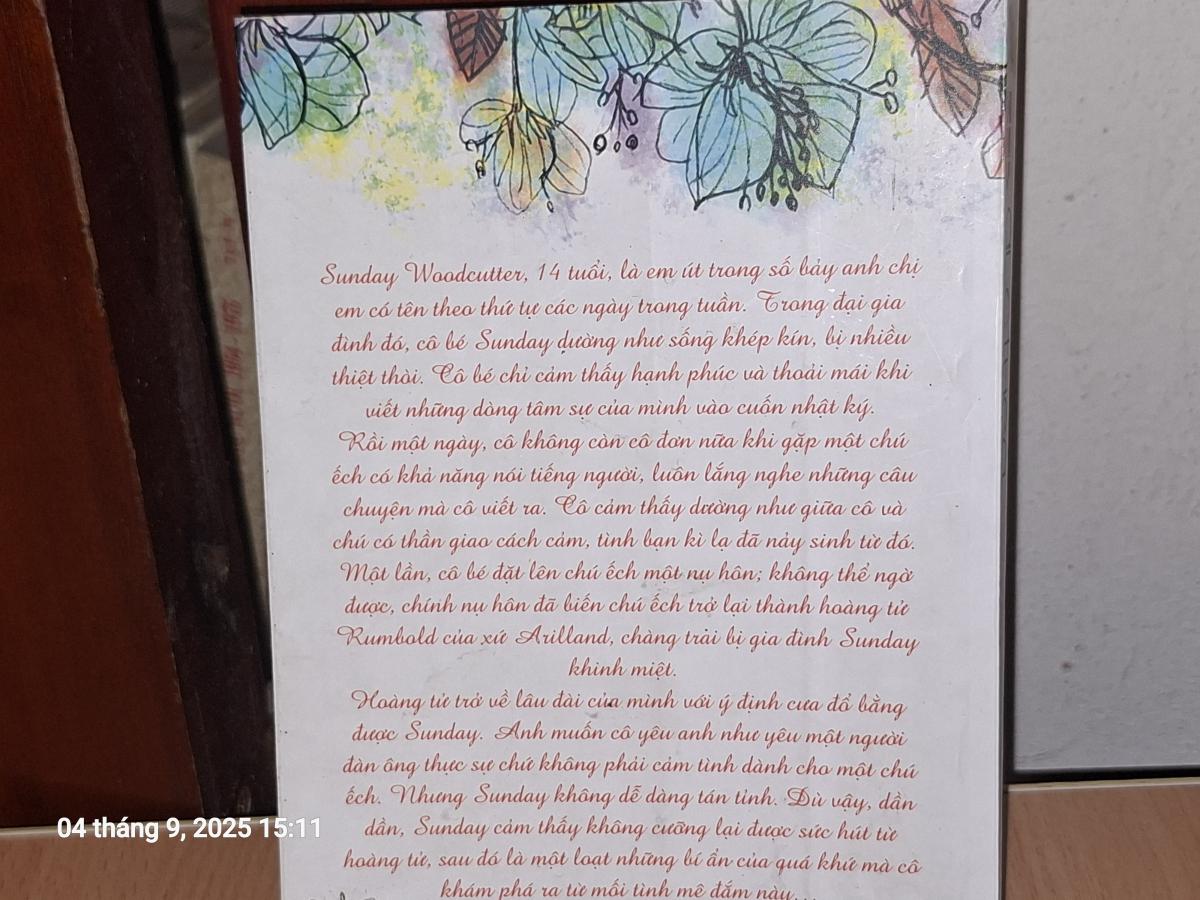 Sunday Woodcutter, 14 tuổi, là em út trong số bảy anh chị
em có tên theo thứ tự các ngày trong tuần. Trong đại gia
đình đó, cô bé Sunday dường như sống khép kín, bị nhiều
thiệt thòi. Cô bé chỉ cảm thấy hạnh phúc và thoải mái khi
viết những dòng tâm sự của mình vào cuốn nhật ký.
Rồi một ngày, cô không còn cô đơn nữa khi gặp một chú
ếch có khả năng nói tiếng người, luôn lắng nghe những câu
chuyện mà cô viết ra. Cô cảm thấy dường như giữa cô và
chú có thần giao cách cảm, tình bạn kì lạ đã nảy sinh từ đó.
Một lần, cô bé đặt lên chú ếch một nụ hôn; không thể ngờ
được, chính nụ hôn đã biến chú ếch trở lại thành hoàng tử
Rumbold của xứ Arilland, chàng trai bị gia đình Sunday
khinh miệt.
Hoàng tử trở về lâu đài của mình với ý định cưa đổ bằng
được Sunday. Anh muốn cô yêu anh như yêu một người
đàn ông thực sự chứ không phải cảm tình dành cho một chú
ếch. Nhưng Sunday không dễ dàng tán tỉnh. Dù vậy, dần
dần, Sunday cảm thấy không cưỡng lại được sức hút từ
hoàng tử, sau đó là một loạt những bí ẩn của quá khứ mà cô
khám phá ra từ mối tình mê đắm này...
04 tháng 9, 2025 15:11